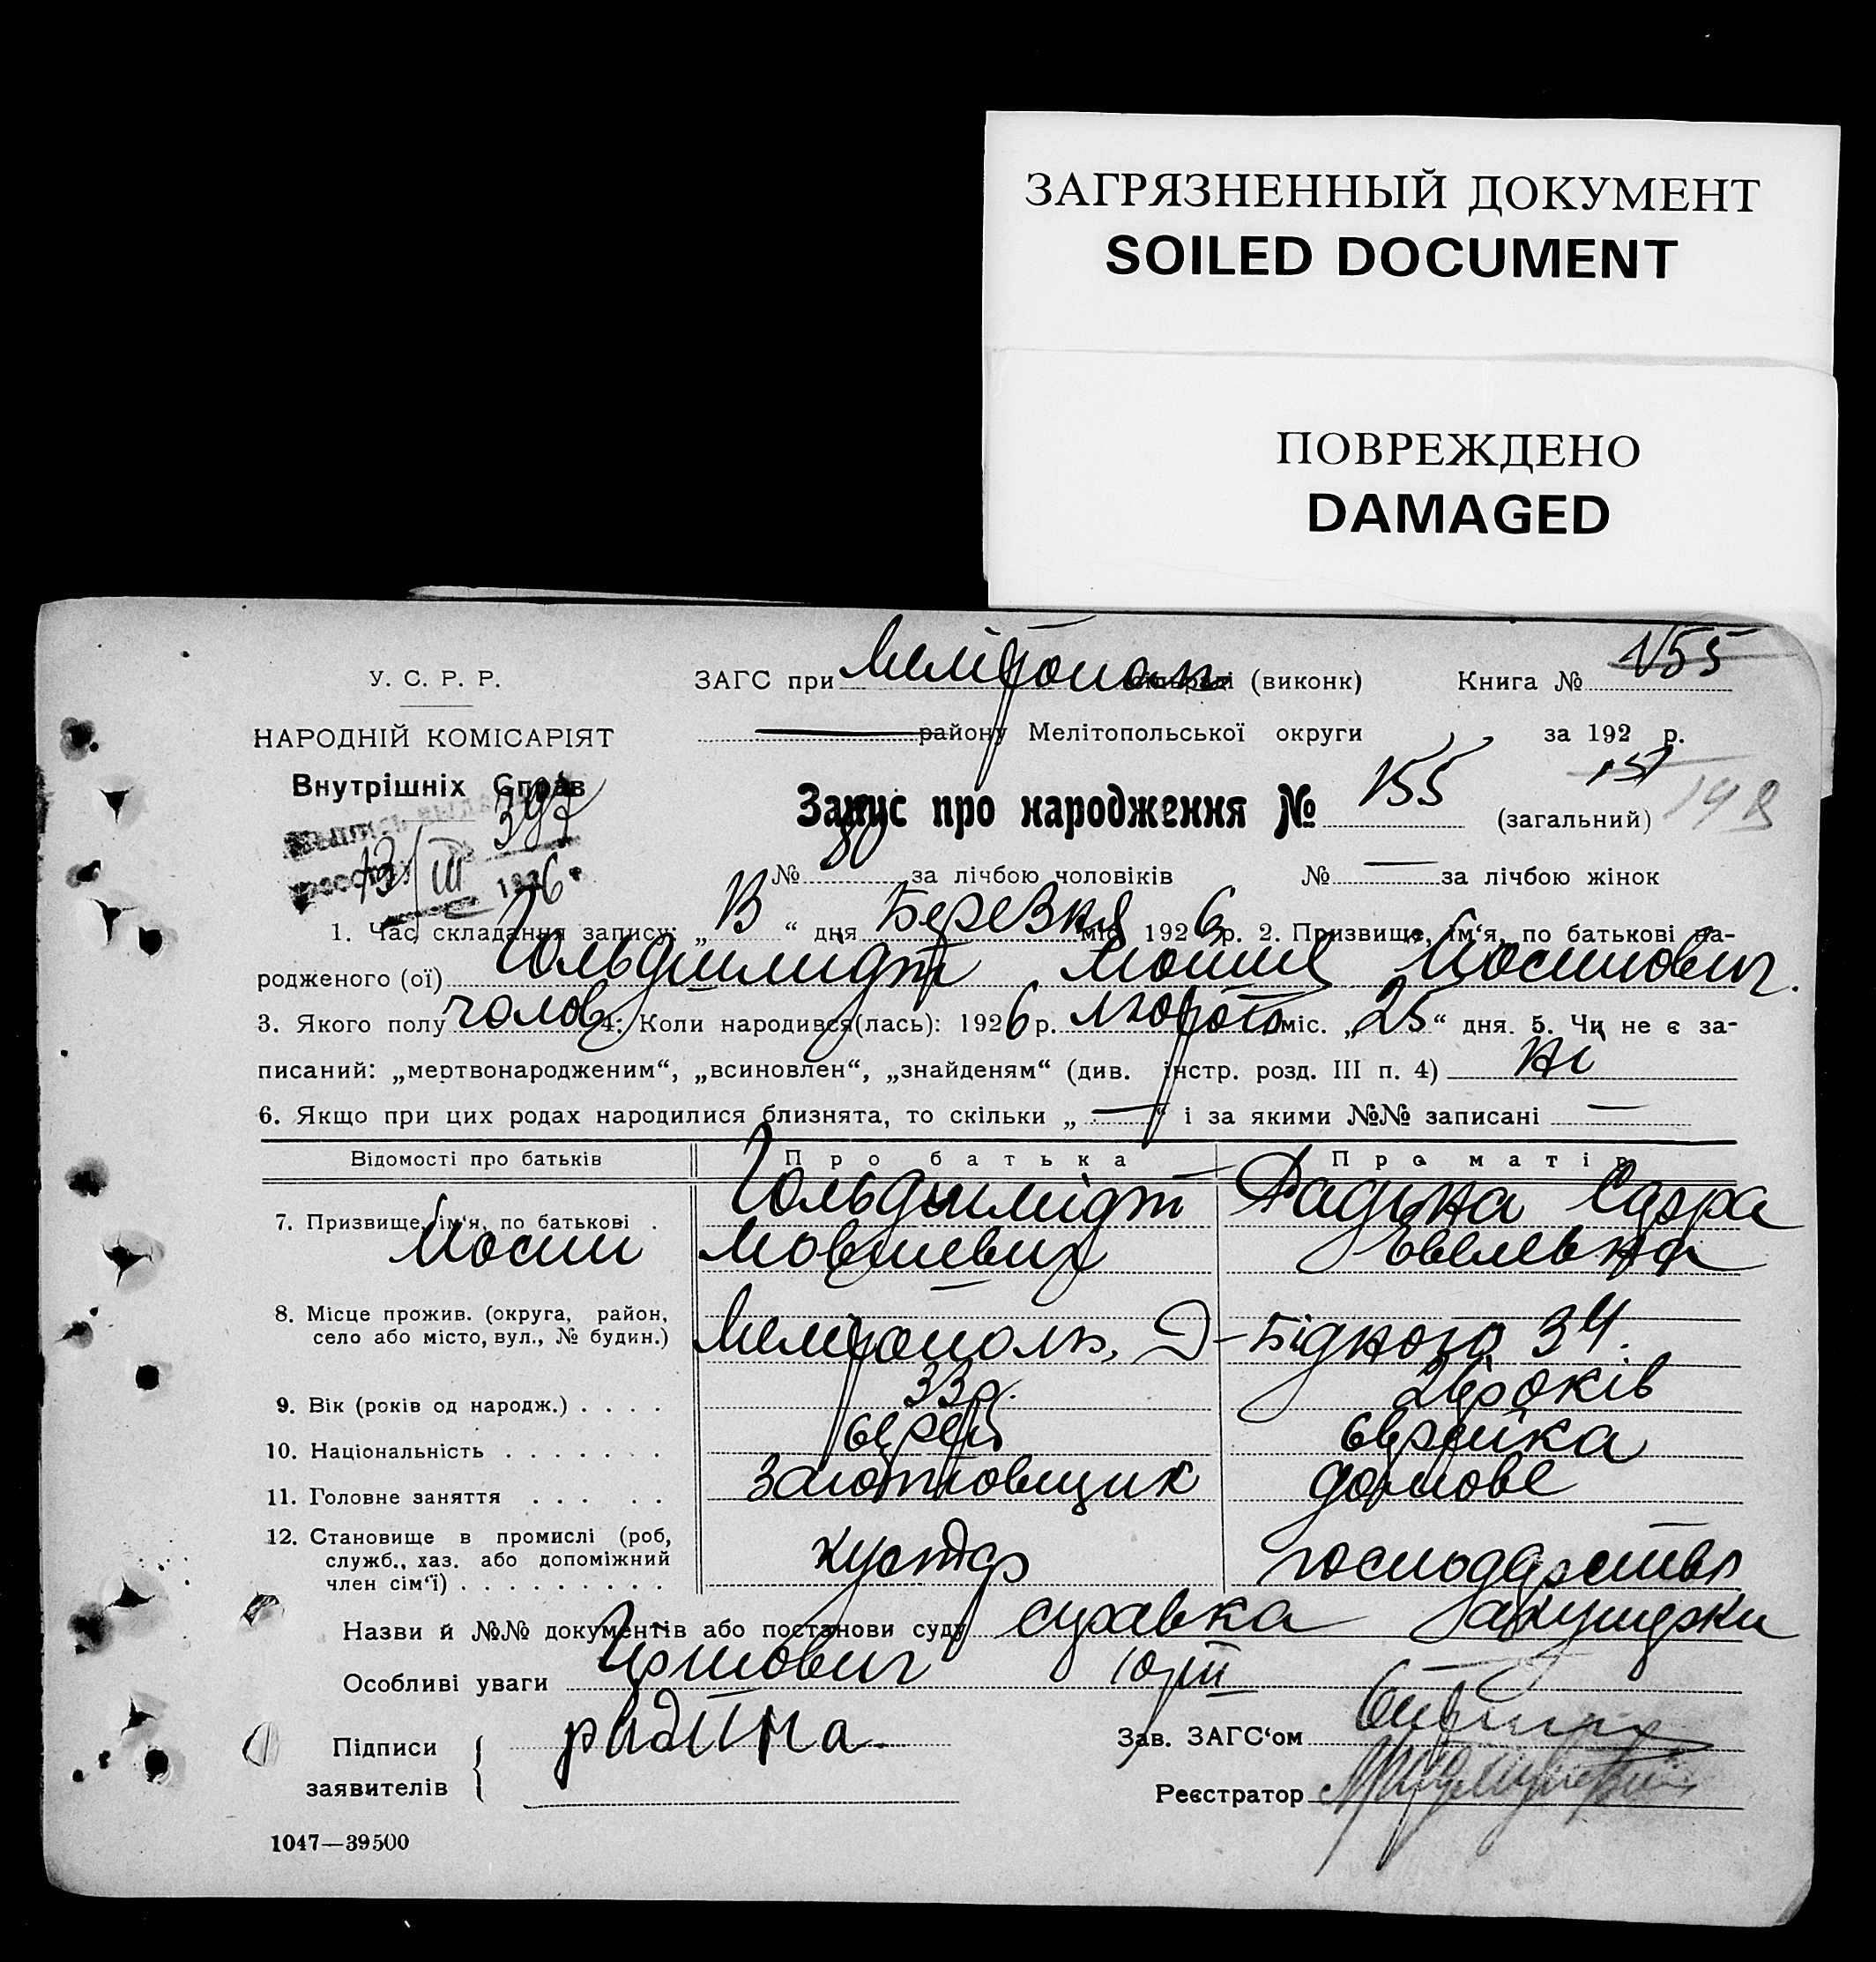 ЗАГРЯЗНЕННЫЙ ДОКУМЕНТ
SOILED DOCUMENT
ПОВРЕЖДЕНО
DAMAGED
У. С. Р. Р.
НАРОДНІЙ КОМІСАРІЯТ
Внутрішніх Справ
397
13/III 1926
ЗАГС при Мелітополь (виконк) Книга № 155
району Мелітопольської округи за 192 р.
Запис про народження № 155 (загальний) 148
№ 80 за лічбою чоловіків № — за лічбою жінок
1. Час складання запису: „ 13 “ дня Березня міс. 1926 р. 2. Призвище, ім‘я, по батькові на-
родженого (ої) Гольдшмидт Мойше Йосипович.
3. Якого полу чолов 4. Коли народився(лась): 1926 р. лютого міс. „ 25 “ дня. 5. Чи не є за-
писаний: „мертвонародженим“, „всиновлен“, „знайденям“ (див. інстр. розд. III п. 4) ні
6. Якщо при цих родах народилися близнята, то скільки „ — “ і за якими №№ записані —
Відомості про батьків Про батька Про матір
7. Призвище, ім‘я, по батькові . Гольдшмідт Радина Сарра
Йосип Мовшевич
8. Місце прожив. (округа, район,
село або місто, вул., № будин.) Мелітополь, Д-Бідного 34.
9. Вік (років од народж.) . . . . 33 р. 26 років
10. Національність . . . . . . . єврей єврейка
11. Головне заняття . . . . . заготовщик домове
12. Становище в промислі (роб,
служб., хаз. або допоміжний
член сім‘ї) . . . . . . . . . кустар господарство
Назви й №№ документів або постанови суду справка акушерки
Особливі уваги 10/III
Підписи
заявителів
радина
Зав. ЗАГС‘ом
Реєстратор
1047—39500